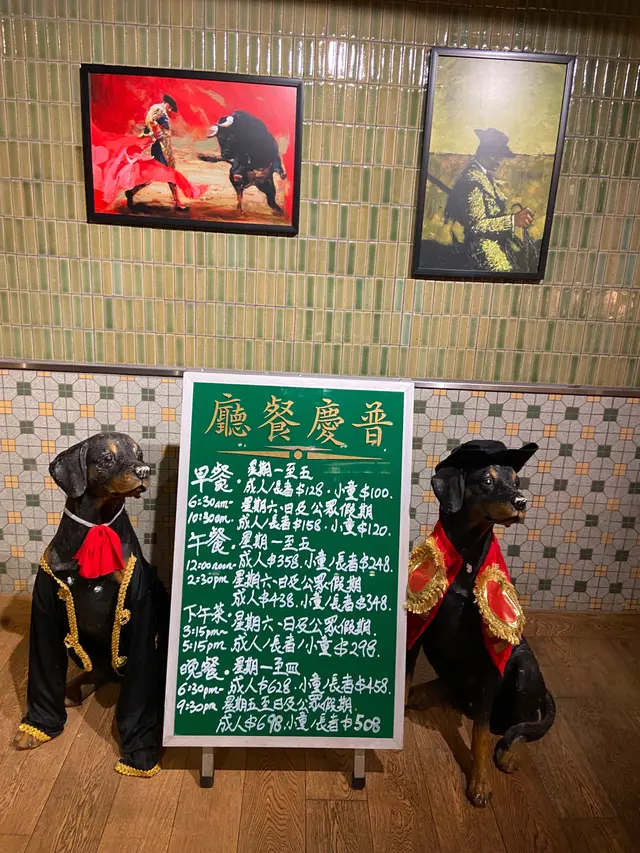 廳餐慶普
早餐. 星期一至五
成人/長者$128.小童$100.
6:30am- 星期六.日及公眾假期
10:30am. 成人/長者$158.小童$120.
午餐. 星期一至五
12:00noon- 成人$358.小童/長者$248.
2:30pm. 星期六.日及公眾假期
成人$438.小童/長者$348.
下午茶 星期六.日及公眾假期.
3:15pm-
5:15pm 成人/長者/小童$298.
晚餐. 星期一至四
6:30pm- 成人$628.小童/長者$458.
9:30pm 星期五至日及公眾假期.
成人$698.小童/長者$508